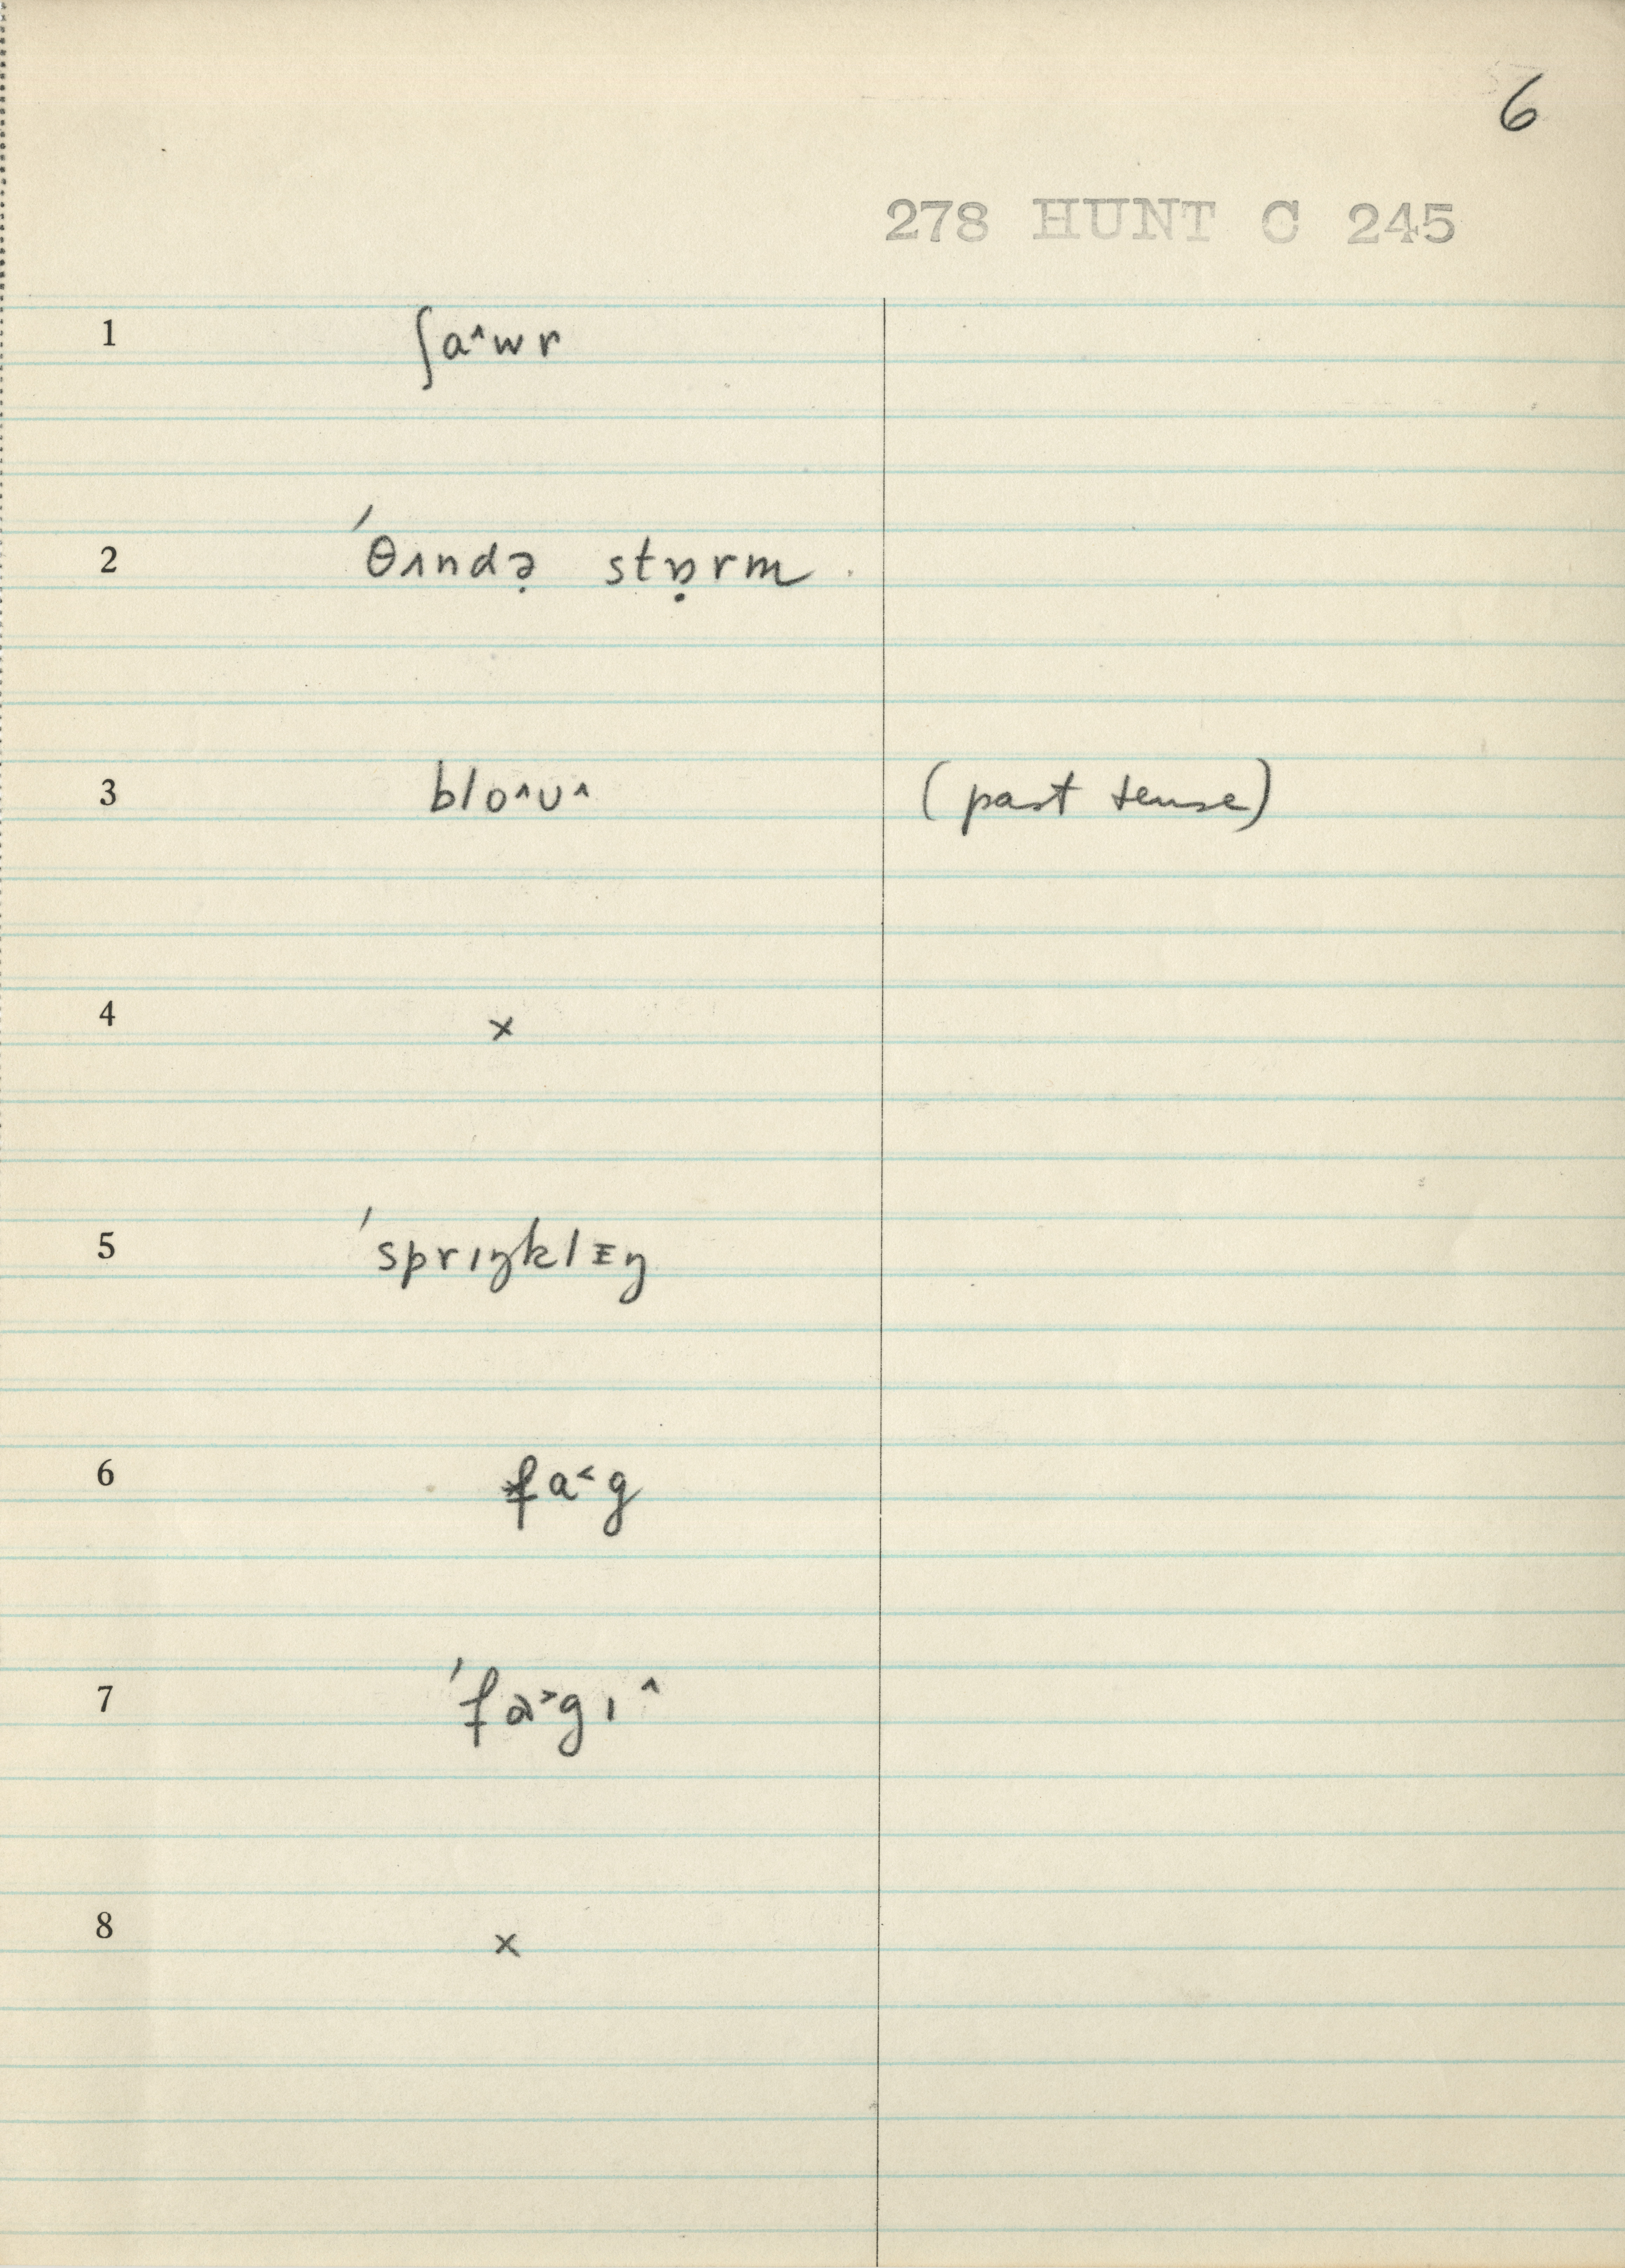 6
278 HUNT C 245
1 ʃa^wr
2 ˈθʌndə̣ stɒ̣rm
3 blo^ʊ^ (past tense)
4 x
5 ˈsprɪŋklɪŋ
6 fa<g
7 ˈfa>gɪ^
8 x